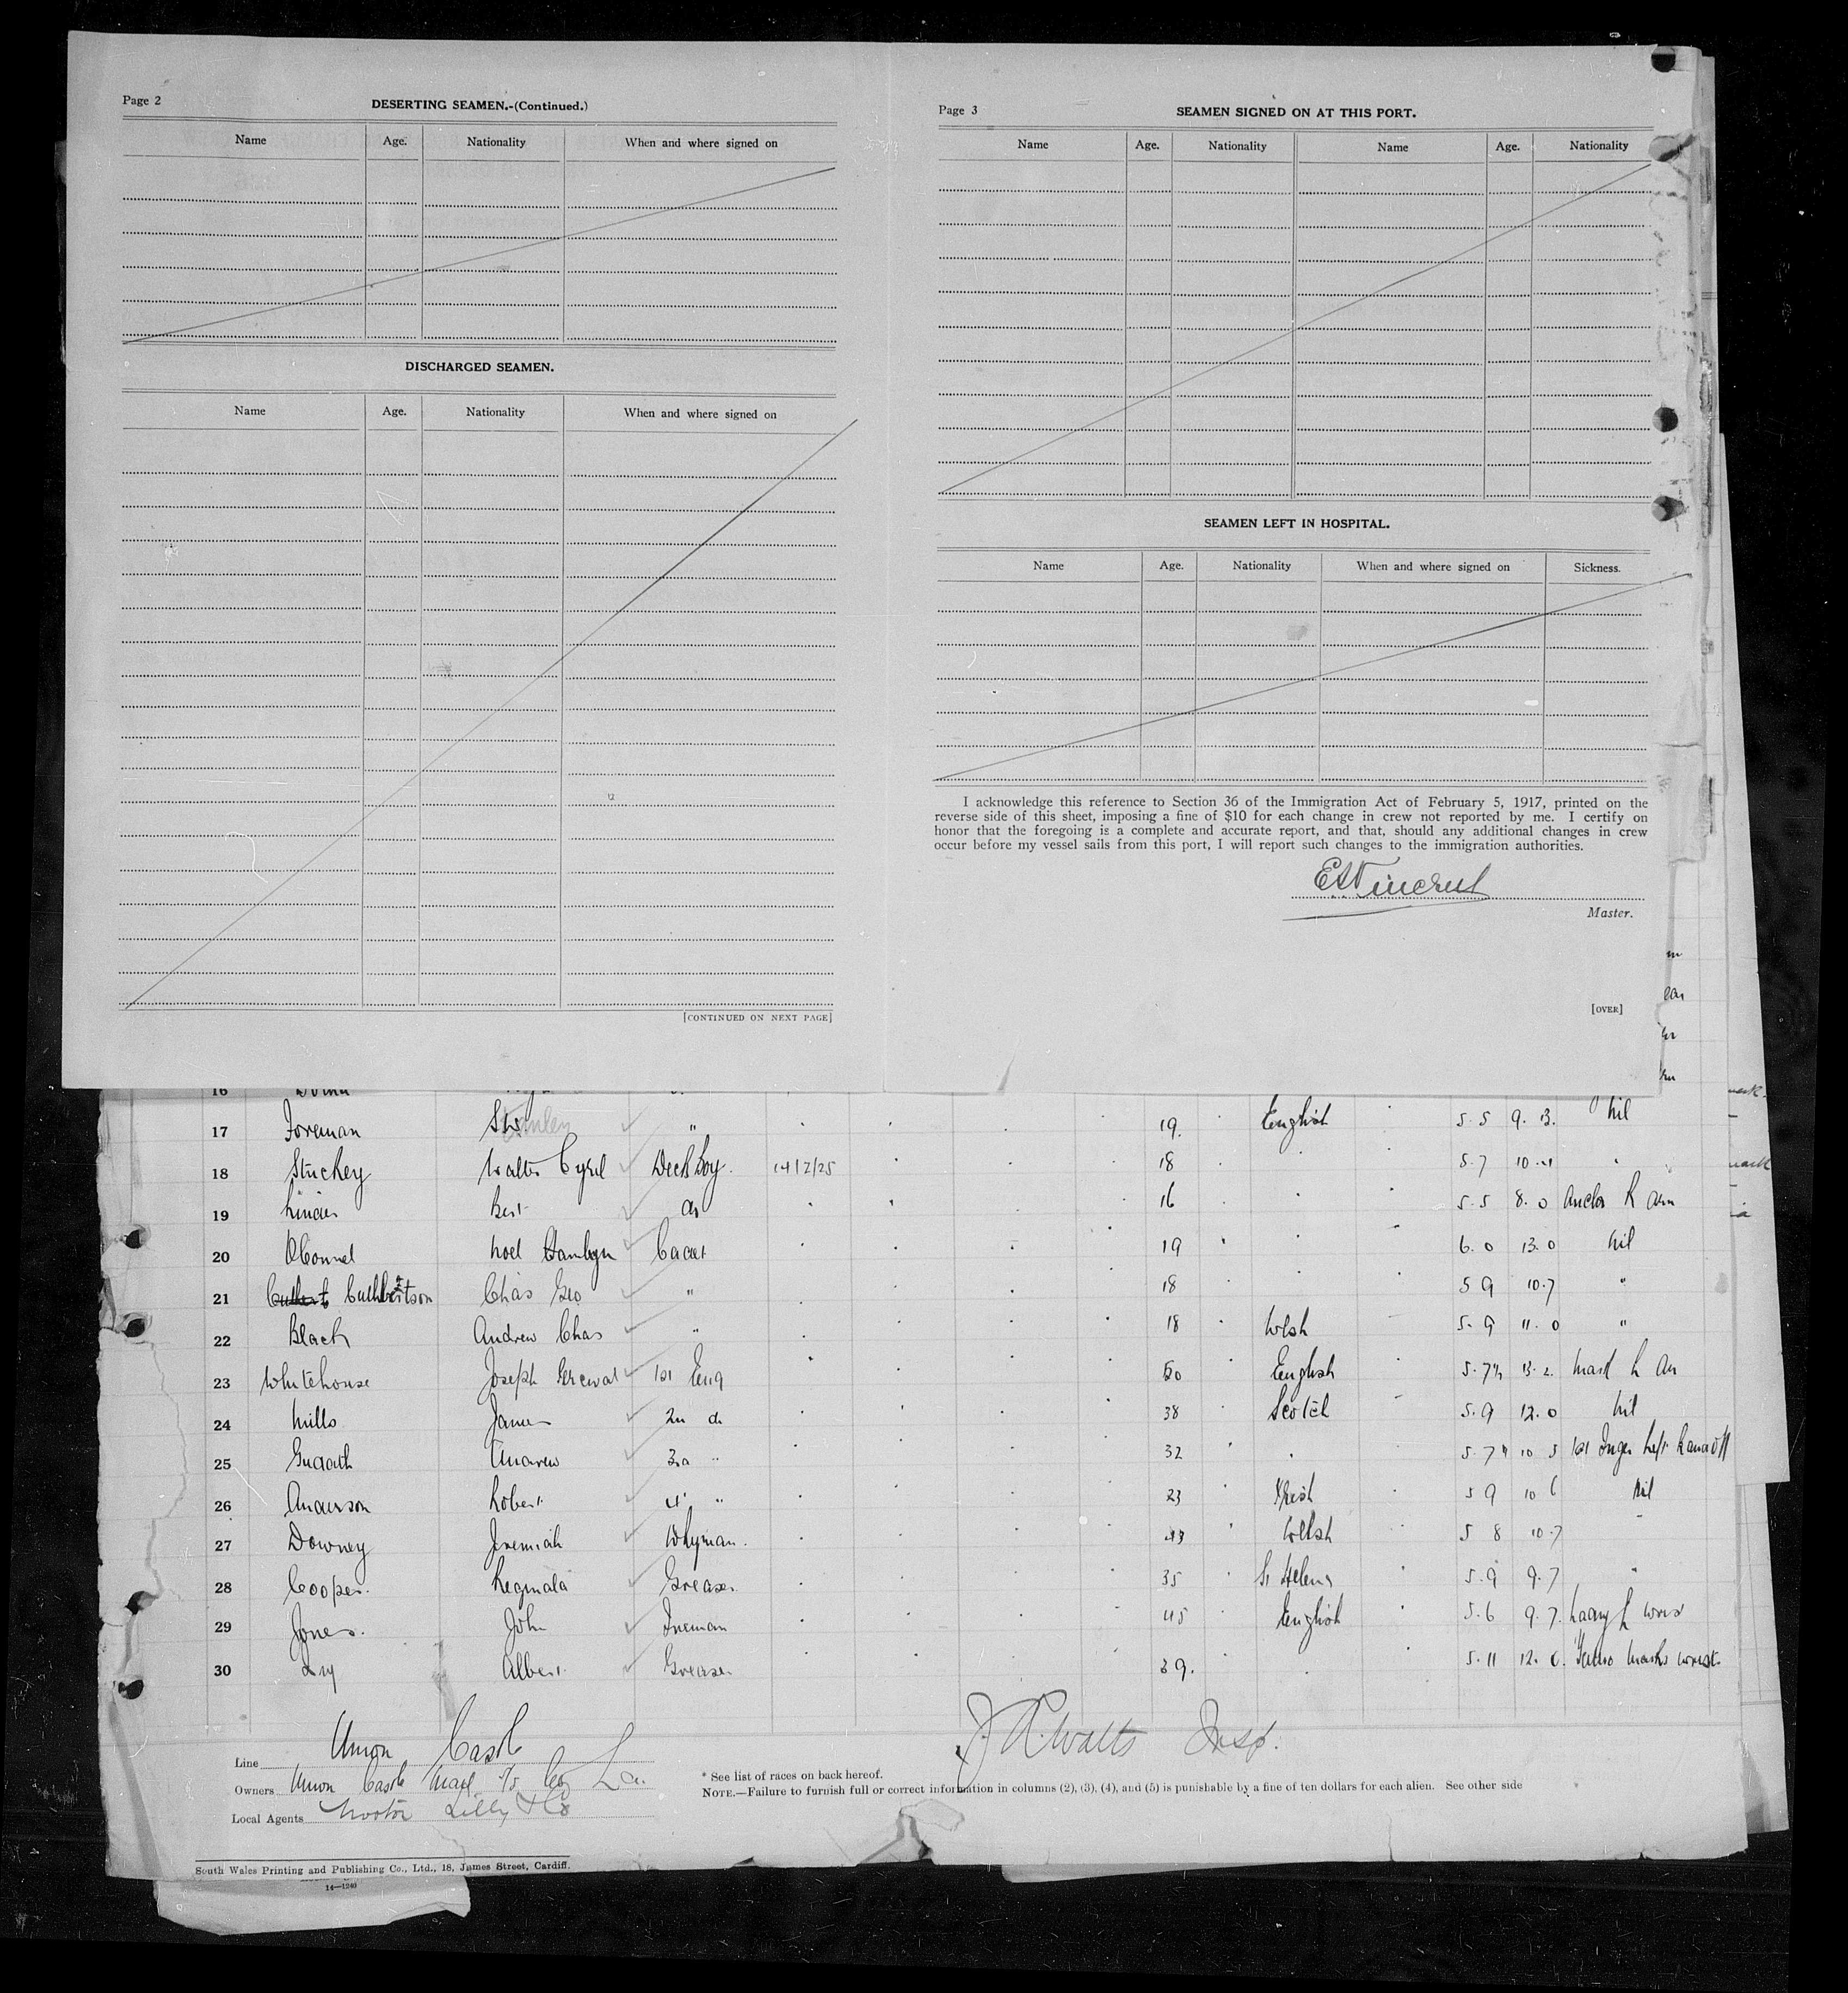 Page 2
DESERTING SEAMEN.-(Continued.)
Name Age. Nationality When and where signed on
DISCHARGED SEAMEN.
Name Age. Nationality When and where signed on
[CONTINUED ON NEXT PAGE]
Page 3
SEAMEN SIGNED ON AT THIS PORT.
Name Age. Nationality Name Age. Nationality
SEAMEN LEFT IN HOSPITAL.
Name Age. Nationality When and where signed on Sickness.
I acknowledge this reference to Section 36 of the Immigration Act of February 5, 1917, printed on the
reverse side of this sheet, imposing a fine of $10 for each change in crew not reported by me. I certify on
honor that the foregoing is a complete and accurate report, and that, should any additional changes in crew
occur before my vessel sails from this port, I will report such changes to the immigration authorities.
Master.
[OVER]
16
17 Foreman Stanley " 19. English 5.5 9.13. Nil
18 Stuckey Walter Cyril Deck Boy. 14/2/25 18 5.7
19 Bert do 16 5.5 8.0 Anchor R arm
20 OConnel Noel Cadet 19 6.0 13.0 Nil
21 Cuthbertson Chas Geo " 18 5 9 10.7 "
22 Black Andrew Chas " 18 Welsh 5.9 11.0 "
23 Whitehouse Joseph Percival 1st Eng 50 English 5.7½ 13.2.
24 Mills James 2nd do 38 Scotch 5.9 12.0 Nil
25 Andrew 3rd " 32 10 5 1st Finger left hand off
26 Anderson Robert 4th " 23 Irish 5 9 10 6 Nil
27 Downey Jeremiah 43 Welsh 5 8 10.7 "
28 Cooper. Reginald Greaser 35 St Helena 5.9 9.7 "
29 Jones. John Fireman 45 English 5.6 9.7.
30 Albert Greaser 39. 5.11 12.6. Tattoo marks wrist
Line Union Castle
Owners Union Castle Mail S/S Co Ld.
Local Agents Norton Lilly & Co
J. R. Watts Insp.
* See list of races on back hereof.
NOTE.—Failure to furnish full or correct information in columns (2), (3), (4), and (5) is punishable by a fine of ten dollars for each alien. See other side
South Wales Printing and Publishing Co., Ltd., 18, James Street, Cardiff.
14—1240